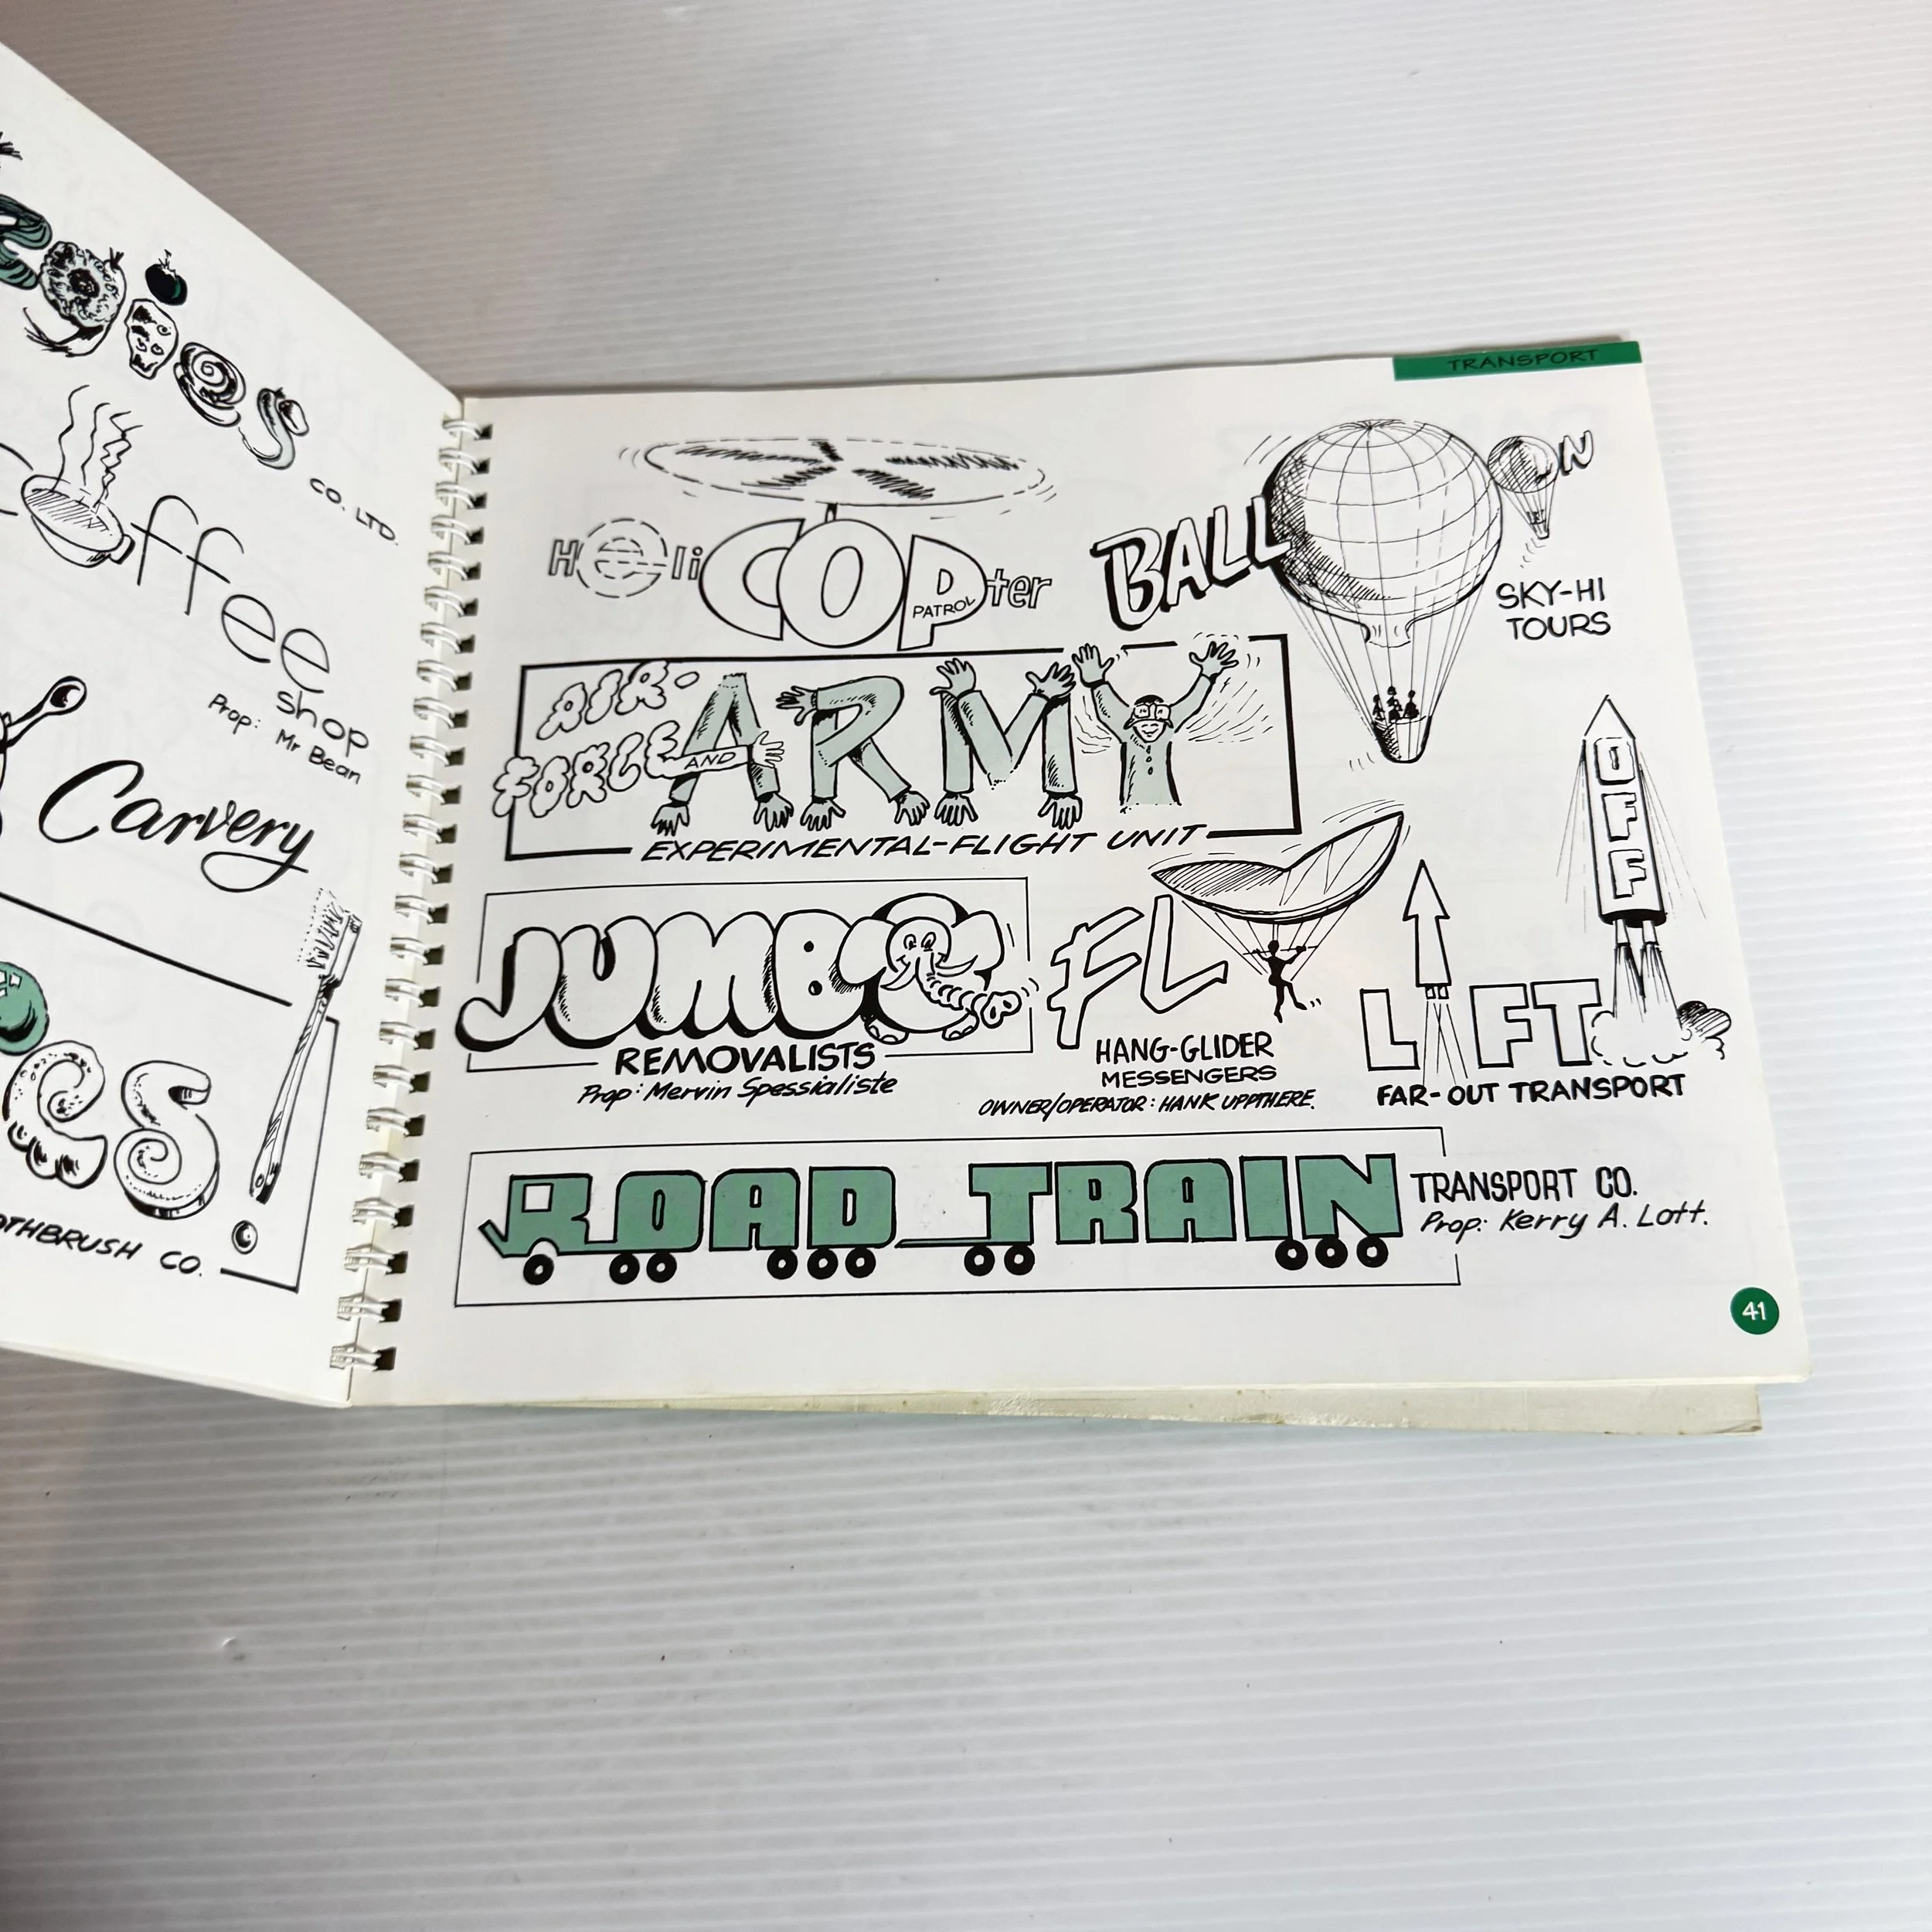 CO. LTD.
ffee
shop
Prop: Mr Bean
Carvery
es
CO.
TRANSPORT
HeliCOPter
PATROL
BALLOON
SKY-HI
TOURS
AIR-
FORCE AND ARMY
EXPERIMENTAL-FLIGHT UNIT
JUMBO
REMOVALISTS
Prop: Mervin Spessialiste
FLY
HANG-GLIDER
MESSENGERS
OWNER/OPERATOR: HANK UPPTHERE.
LIFT OFF
FAR-OUT TRANSPORT
ROAD TRAIN
TRANSPORT CO.
Prop: Kerry A. Lott.
41